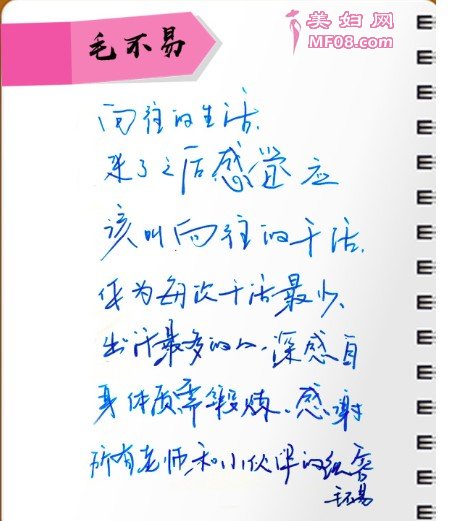 毛不易
美妇网
MF08.com
向往的生活,
来了之后感觉应
该叫向往的干活,
作为每次干活最少、
出汗最多的人,深感自
身体质需锻炼、感谢
所有老师和小伙伴的照顾
毛不易